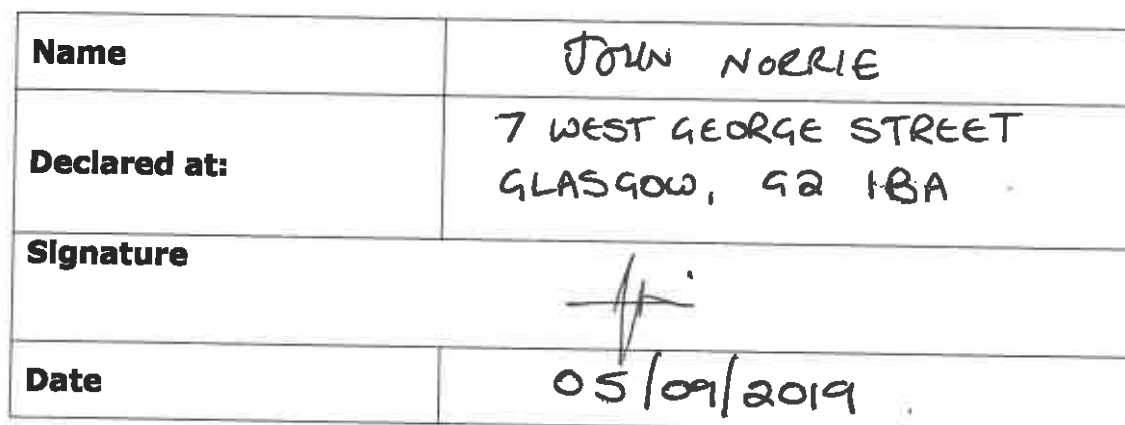 Name JOHN NORRIE
Declared at: 7 WEST GEORGE STREET
GLASGOW, G2 1BA
Signature
Date 05/09/2019